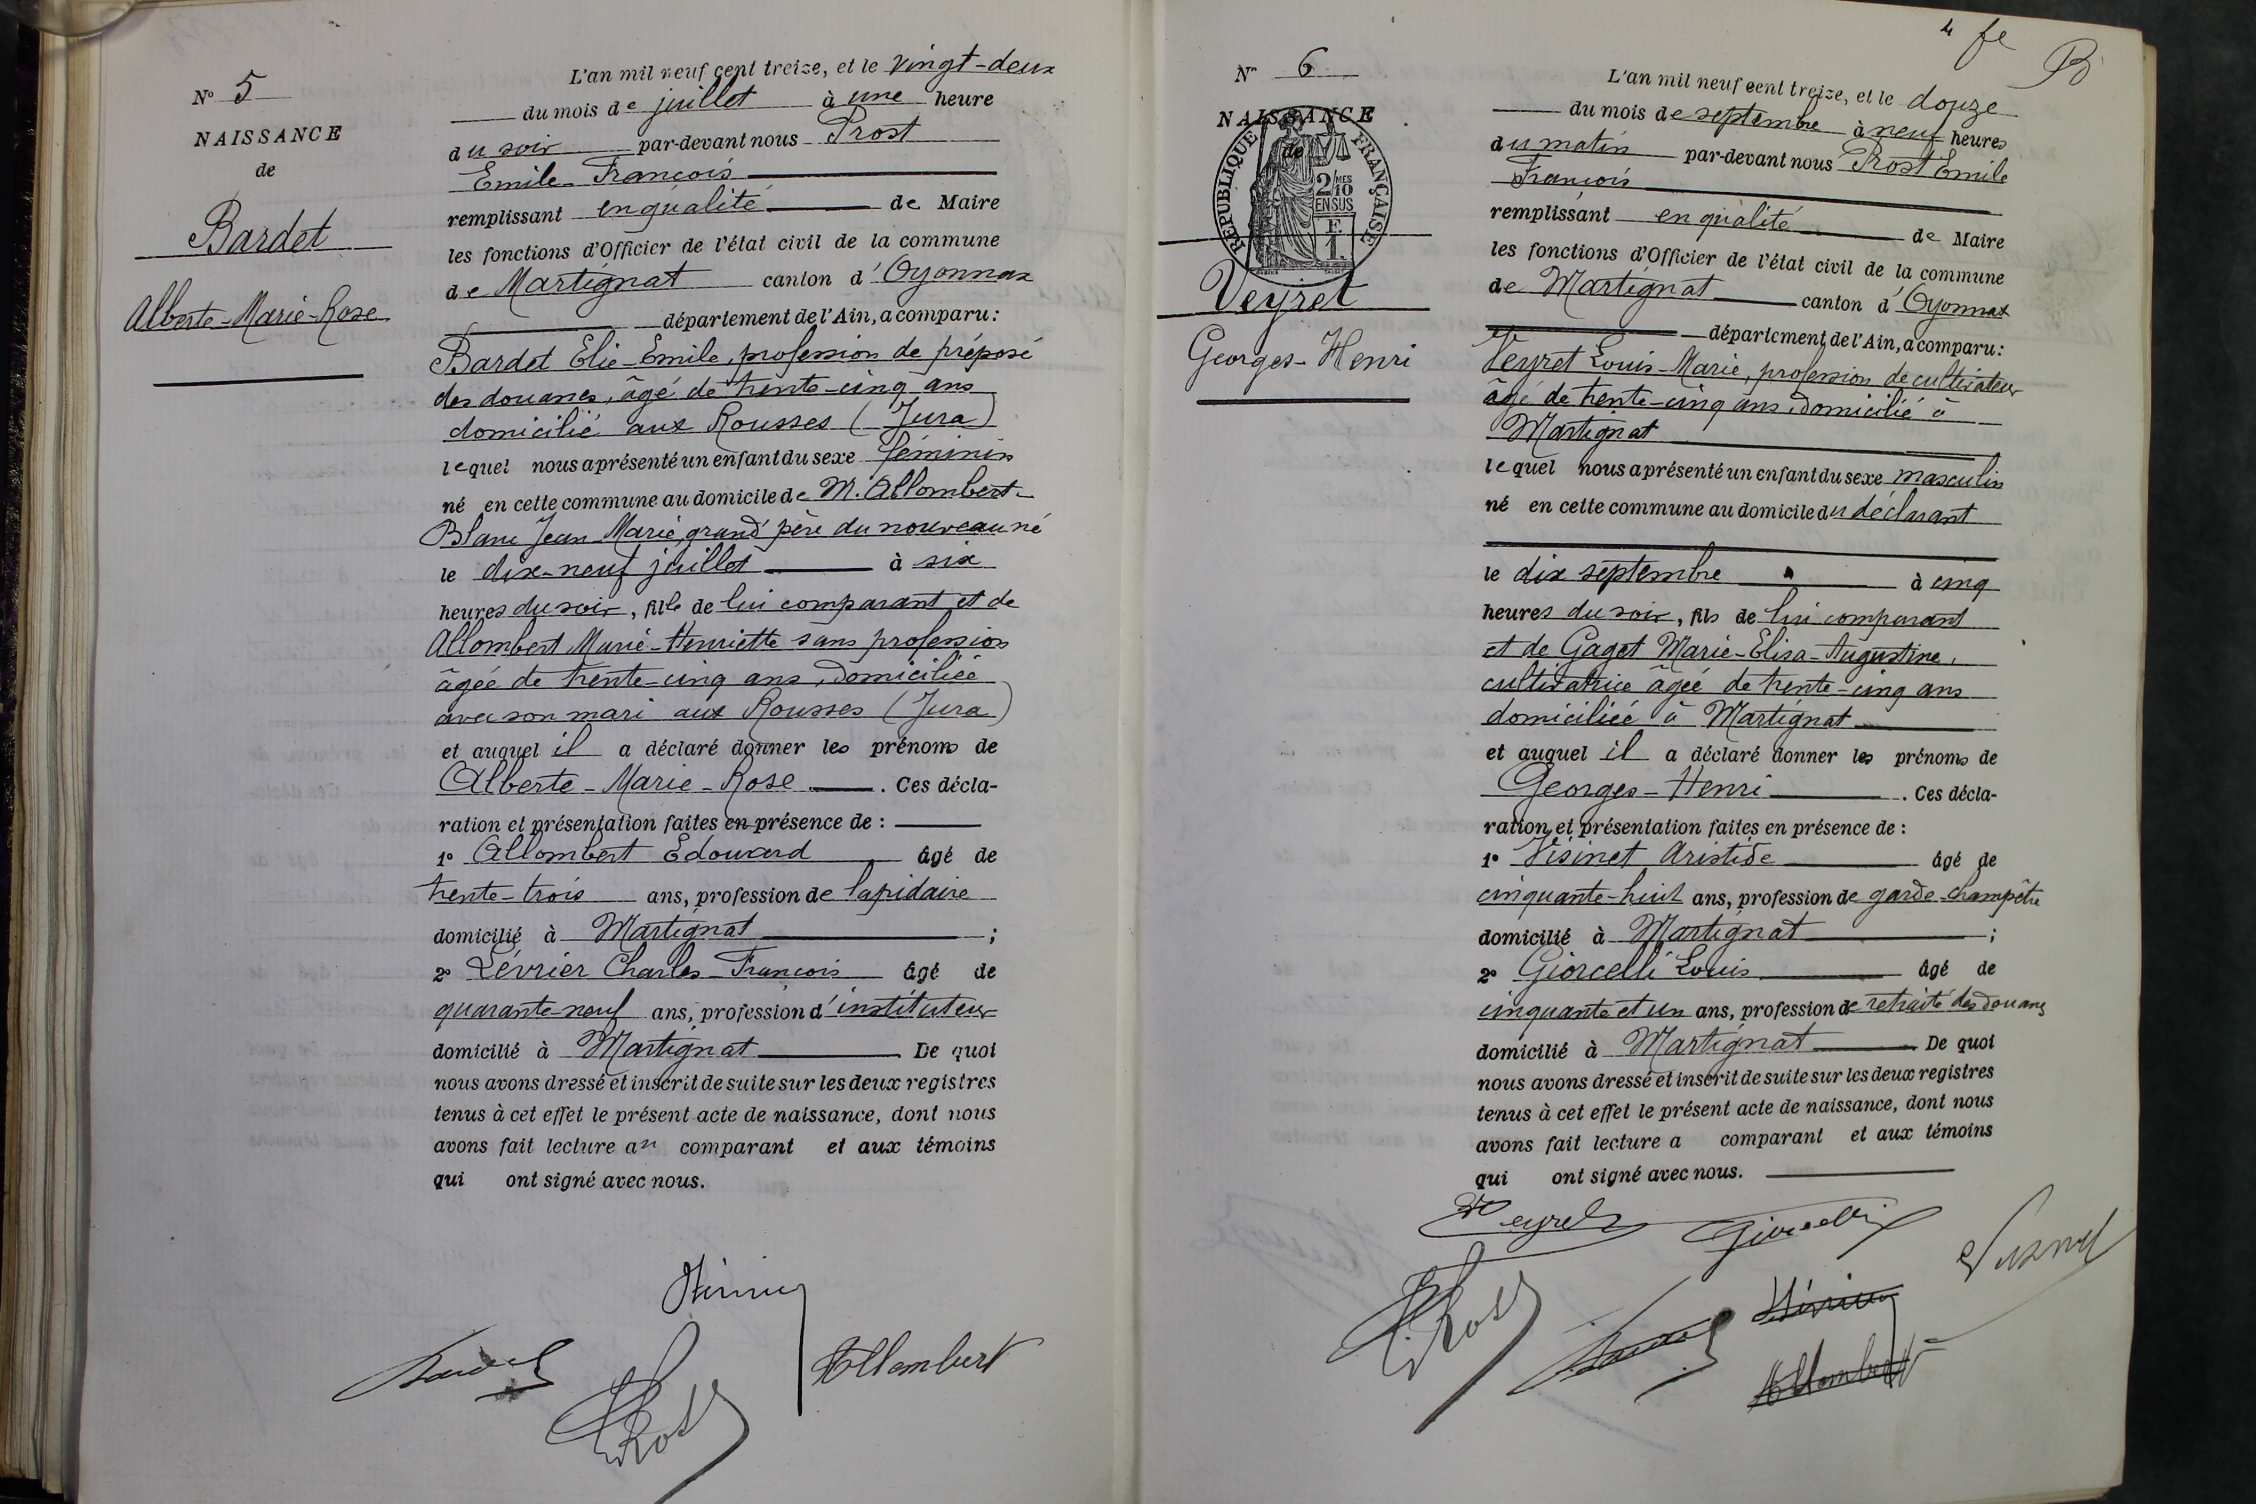 N° 5
NAISSANCE
de
Bardet
Alberte-Marie-Rose
L'an mil neuf cent treize, et le vingt-deux
du mois de juillet à une heure
du soir par-devant nous Prost
Emile François
remplissant en qualité de Maire
les fonctions d'Officier de l'état civil de la commune
de Martignat canton d'Oyonnax
département de l'Ain, a comparu:
Bardet Elie-Emile, profession de préposé
des douanes, âgé de trente-cinq ans
domicilié aux Rousses (Jura)
lequel nous a présenté un enfant du sexe féminin
né en cette commune au domicile de M. Allombert-
Blanc Jean Marie, grand'père du nouveau né
le dix-neuf juillet à six
heures du soir, fille de lui comparant et de
Allombert Marie-Henriette sans profession
âgée de trente-cinq ans, domiciliée
avec son mari aux Rousses (Jura)
et auquel il a déclaré donner les prénoms de
Alberte-Marie-Rose. Ces décla-
ration et présentation faites en présence de :
1° Allombert Edouard âgé de
trente-trois ans, profession de lapidaire
domicilié à Martignat ;
2° Lévrier Charles-François âgé de
quarante-neuf ans, profession d'instituteur
domicilié à Martignat De quoi
nous avons dressé et inscrit de suite sur les deux registres
tenus à cet effet le présent acte de naissance, dont nous
avons fait lecture au comparant et aux témoins
qui ont signé avec nous.
Allombert
4 fe
N° 6
NAISSANCE
de
RÉPUBLIQUE FRANÇAISE
2/MES 10
EN SUS
F.
1.
Veyret
Georges-Henri
L'an mil neuf cent treize, et le douze
du mois de septembre à neuf heures
du matin par-devant nous Prost Emile
François
remplissant en qualité de Maire
les fonctions d'Officier de l'état civil de la commune
de Martignat canton d'Oyonnax
département de l'Ain, a comparu:
Veyret Louis-Marie, profession de cultivateur
âgé de trente-cinq ans, domicilié à
Martignat
lequel nous a présenté un enfant du sexe masculin
né en cette commune au domicile du déclarant
le dix septembre à cinq
heures du soir, fils de lui comparant
et de Gaget Marie-Elisa-Augustine,
cultivatrice âgée de trente-cinq ans
domiciliée à Martignat
et auquel il a déclaré donner les prénoms de
Georges-Henri. Ces décla-
ration et présentation faites en présence de :
1° Visinet Aristide âgé de
cinquante-huit ans, profession de garde-champêtre
domicilié à Martignat ;
2° Giorcelli Louis âgé de
cinquante et un ans, profession de retraité des douanes
domicilié à Martignat De quoi
nous avons dressé et inscrit de suite sur les deux registres
tenus à cet effet le présent acte de naissance, dont nous
avons fait lecture a comparant et aux témoins
qui ont signé avec nous.
Veyret
Giorcelli
Allombert